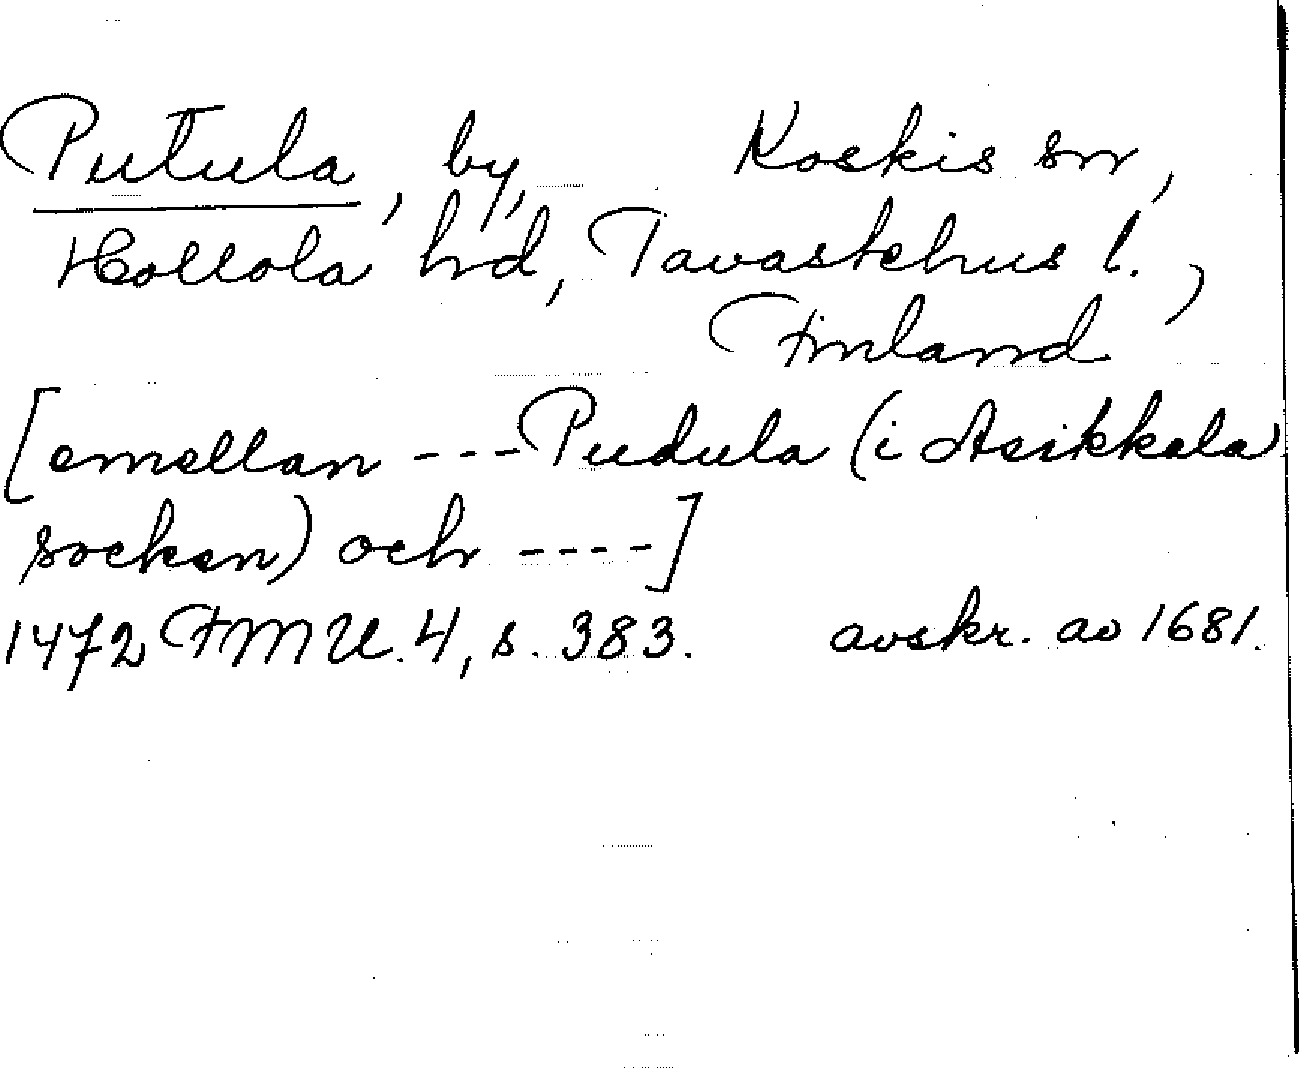 Putula, by, Koskis sn,
Hollola hd, Tavastehus l.,
Finland
[emellan --- Pudula (i Asikkala
socken) och ----]
1472 FMU. 4, s. 383. avskr. av 1681.